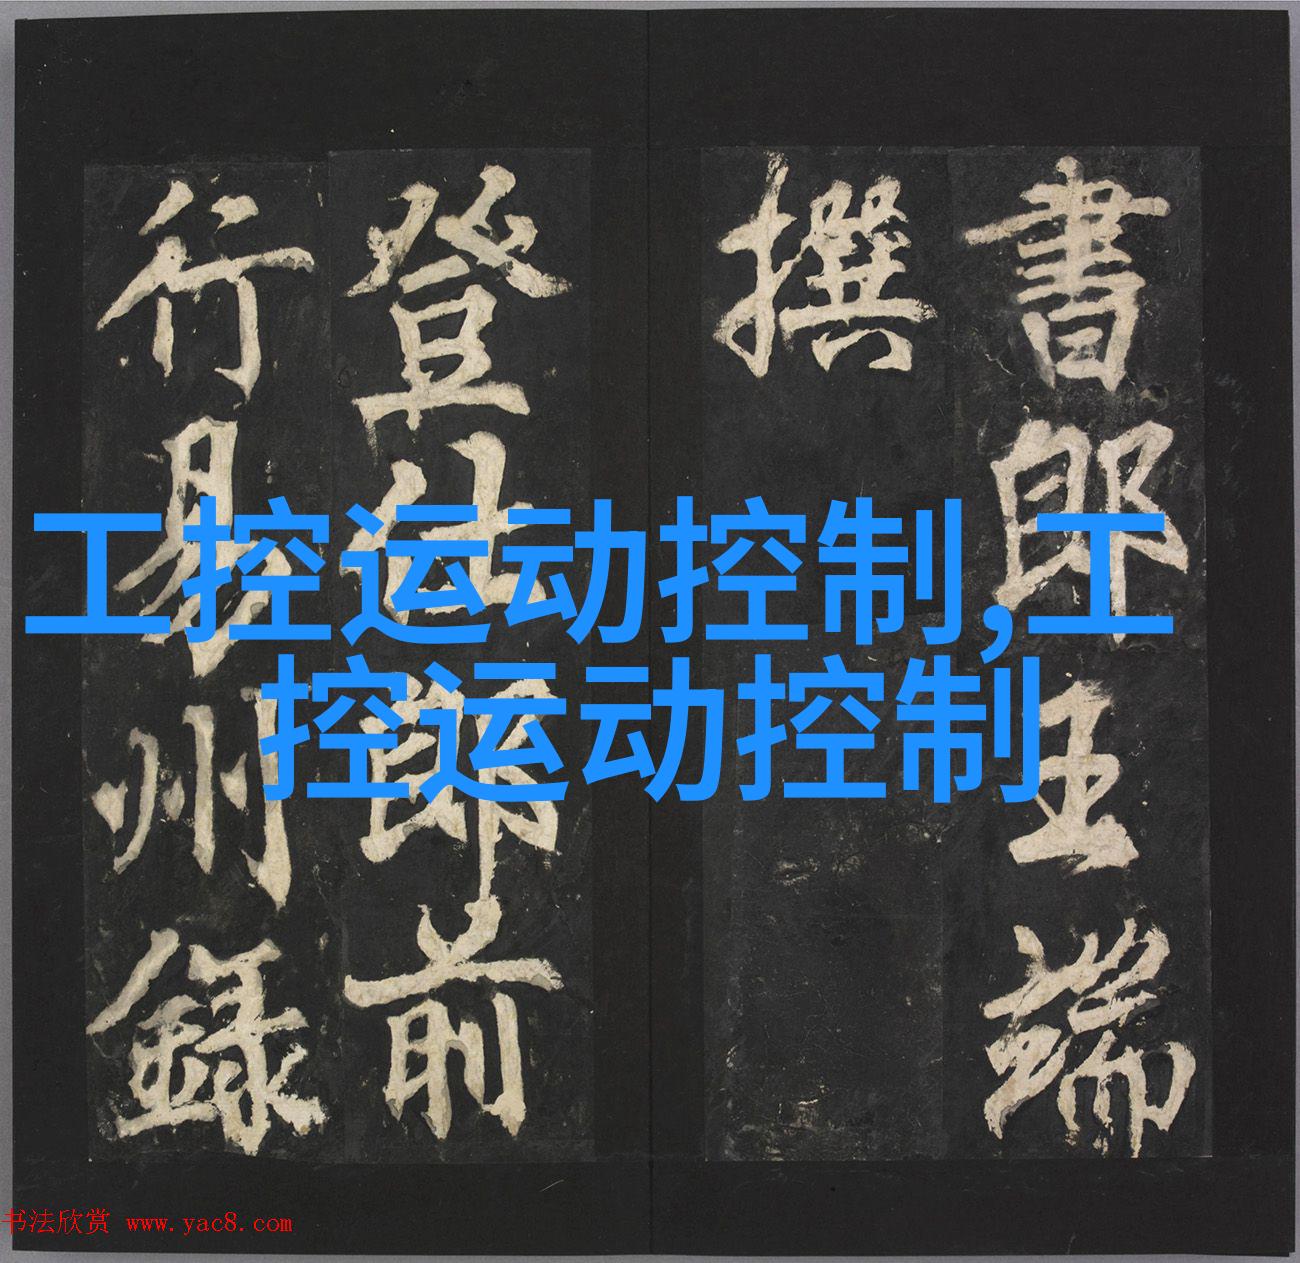 書郎王端
撰
登仕郎前
行易州錄
工控运动控制,工
控运动控制
书法欣赏 www.yac8.com